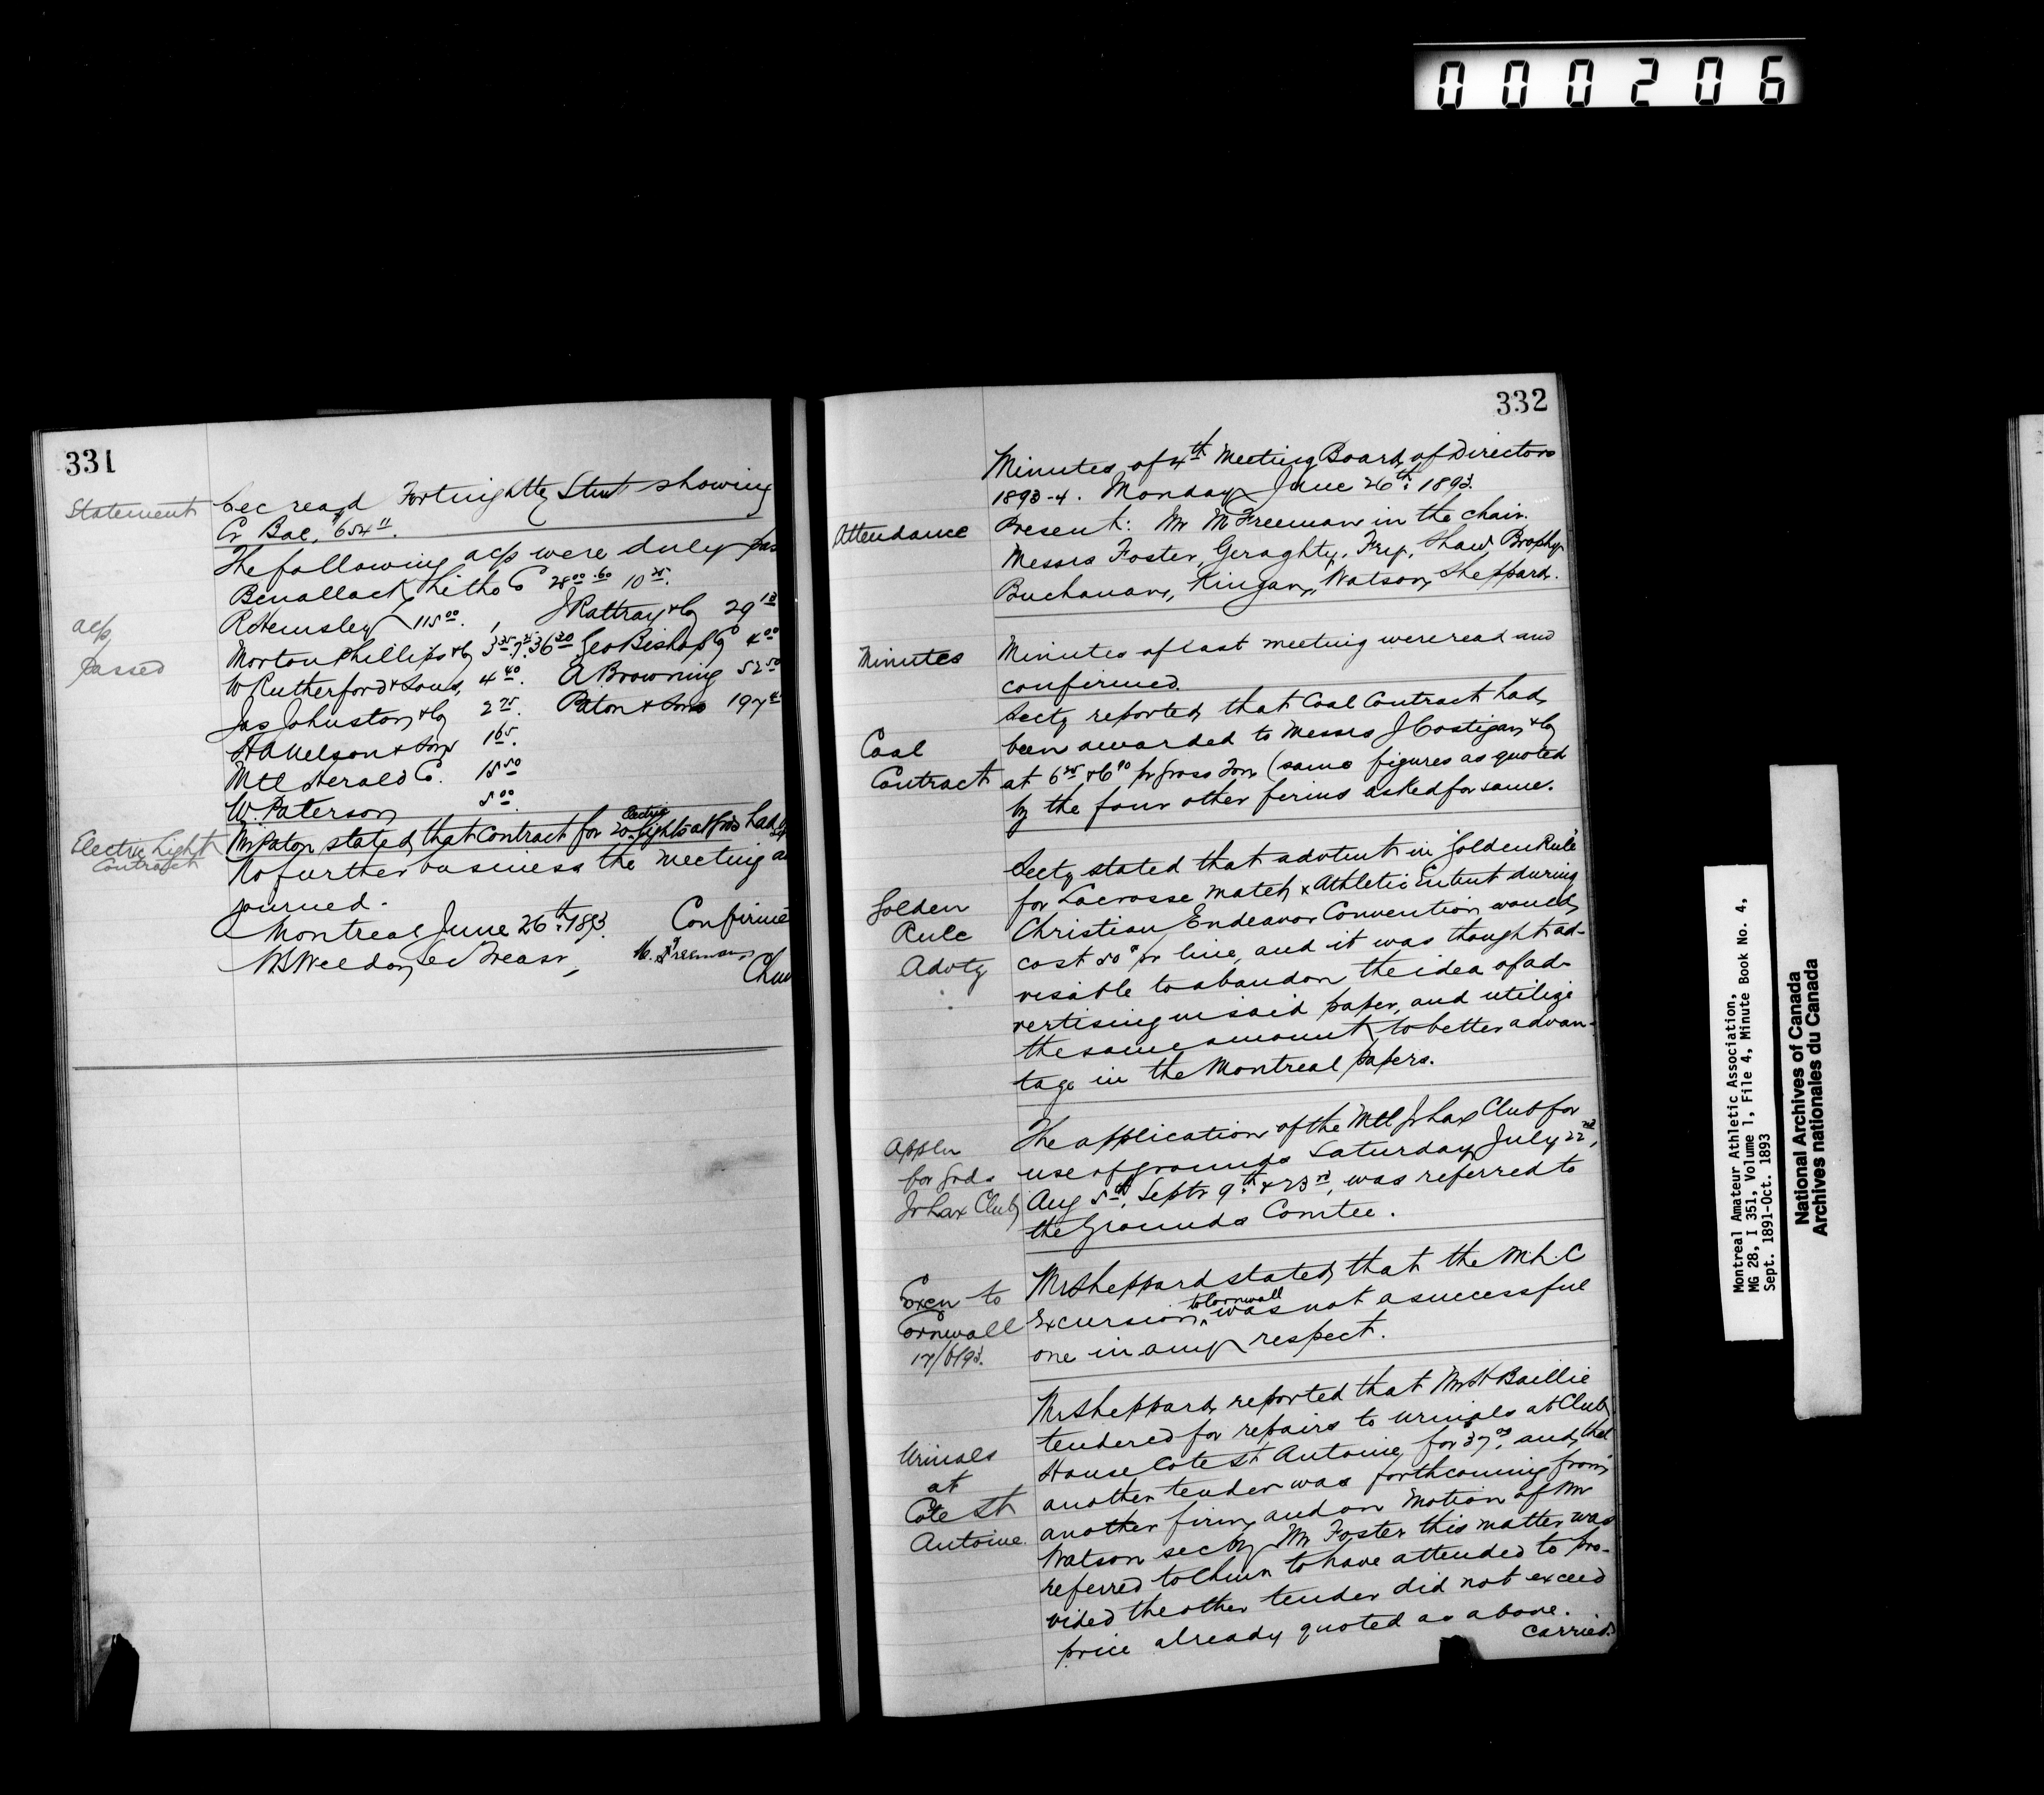 000206
331
Statement Sec read Fortnightly Stmt showing
Cr Bal, 654 11.
The following a/cs were duly pas
Benallack Litho Co 28 00 .60 10 25.
a/cs R Hemsley 115 00. J Rattray & Co 29 13
passed Morton Phillips & Co 3 25. 7 25. 36 30 Geo Bishop Co 4 00
W Rutherford & Sons, 4 40. A Browning 52 50
Jas Johnston & Co 2 75. Paton & Sons 197
H A Nelson & Sons 1 65.
Mtl Herald Co. 15 50
W. Paterson 5 00.
Electric Light Contract Mr Paton stated that Contract for 20 electric lights at Grds had
No further business the meeting a
journed.
Montreal June 26th 1893. Confirme
W S Weldon Sec Treasr, M. Freeman
Chm
332
Minutes of 4th Meeting Board of Directors
1893-4. Monday June 26th 1893.
Attendance Present: Mr M Freeman in the chair.
Messrs Foster, Geraghty, Fry, Shaw, Brophy
Buchanan, Kingan, Watson, Sheppard.
Minutes Minutes of last meeting were read and
confirmed.
Secty reported that Coal Contract had
Coal been awarded to Messrs J Costigan & Co
Contract at 6 25 & 6 00 pr Gross Ton (same figures as quoted
by the four other firms asked for same.
Secty stated that advtmt in Golden Rule
Golden for Lacrosse match & Athletic Entmt during
Rule Christian Endeavor Convention would
Advtg cost 50c pr line, and it was thought ad-
visable to abandon the idea of ad-
vertising in said paper, and utilize
the same amount to better advan-
tage in the Montreal papers.
Appln The application of the Mtl Jr Lax Club for
for Grds use of grounds Saturday July 22nd,
Jr Lax Club Aug 5th, Septr 9th & 23rd, was referred to
the Grounds Comtee.
Excn to Mr Sheppard stated that the M.L.C
Cornwall Excursion to Cornwall was not a successful
17/6/93. one in any respect.
Mr Sheppard reported that Mr H Baillie
tendered for repairs to urinals at Club
Urinals House Cote St Antoine for 37 00, and that
at another tender was forthcoming from
Cote St another firm, and on motion of Mr
Antoine. Watson sec by Mr Foster this matter was
referred to Chmn to have attended to pro-
vided the other tender did not exceed
price already quoted as above.
Carried.
Montreal Amateur Athletic Association,
MG 28, I 351, Volume 1, File 4, Minute Book No. 4,
Sept. 1891-Oct. 1893
National Archives of Canada
Archives nationales du Canada